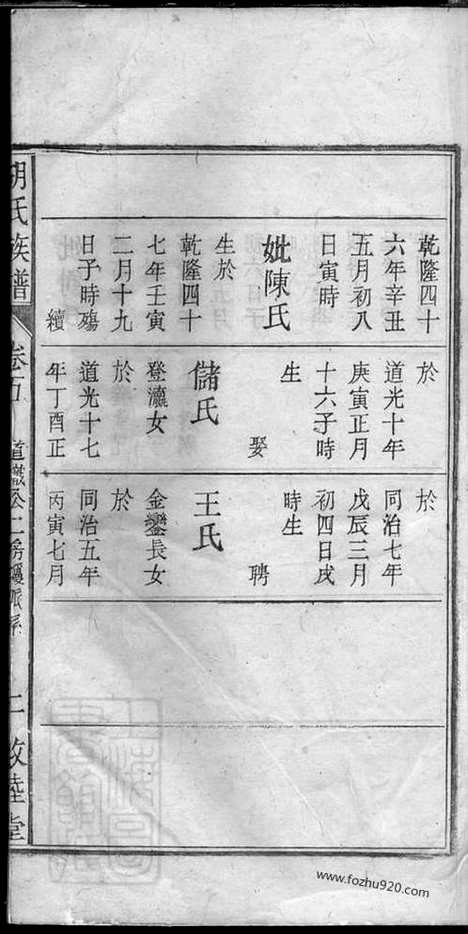 乾隆四十
六年辛丑
五月初八
日寅時
妣陳氏
生於
乾隆四十
七年壬寅
二月十九
日子時殤
續
於
道光十年
庚寅正月
十六子時
生
娶
儲氏
登瀛女
於
道光十七
年丁酉正
於
同治七年
戊辰三月
初四日戌
時生
聘
王氏
金鑾長女
於
同治五年
丙寅七月
胡氏族譜
卷五
二房
敦睦堂
www.fozhu920.com